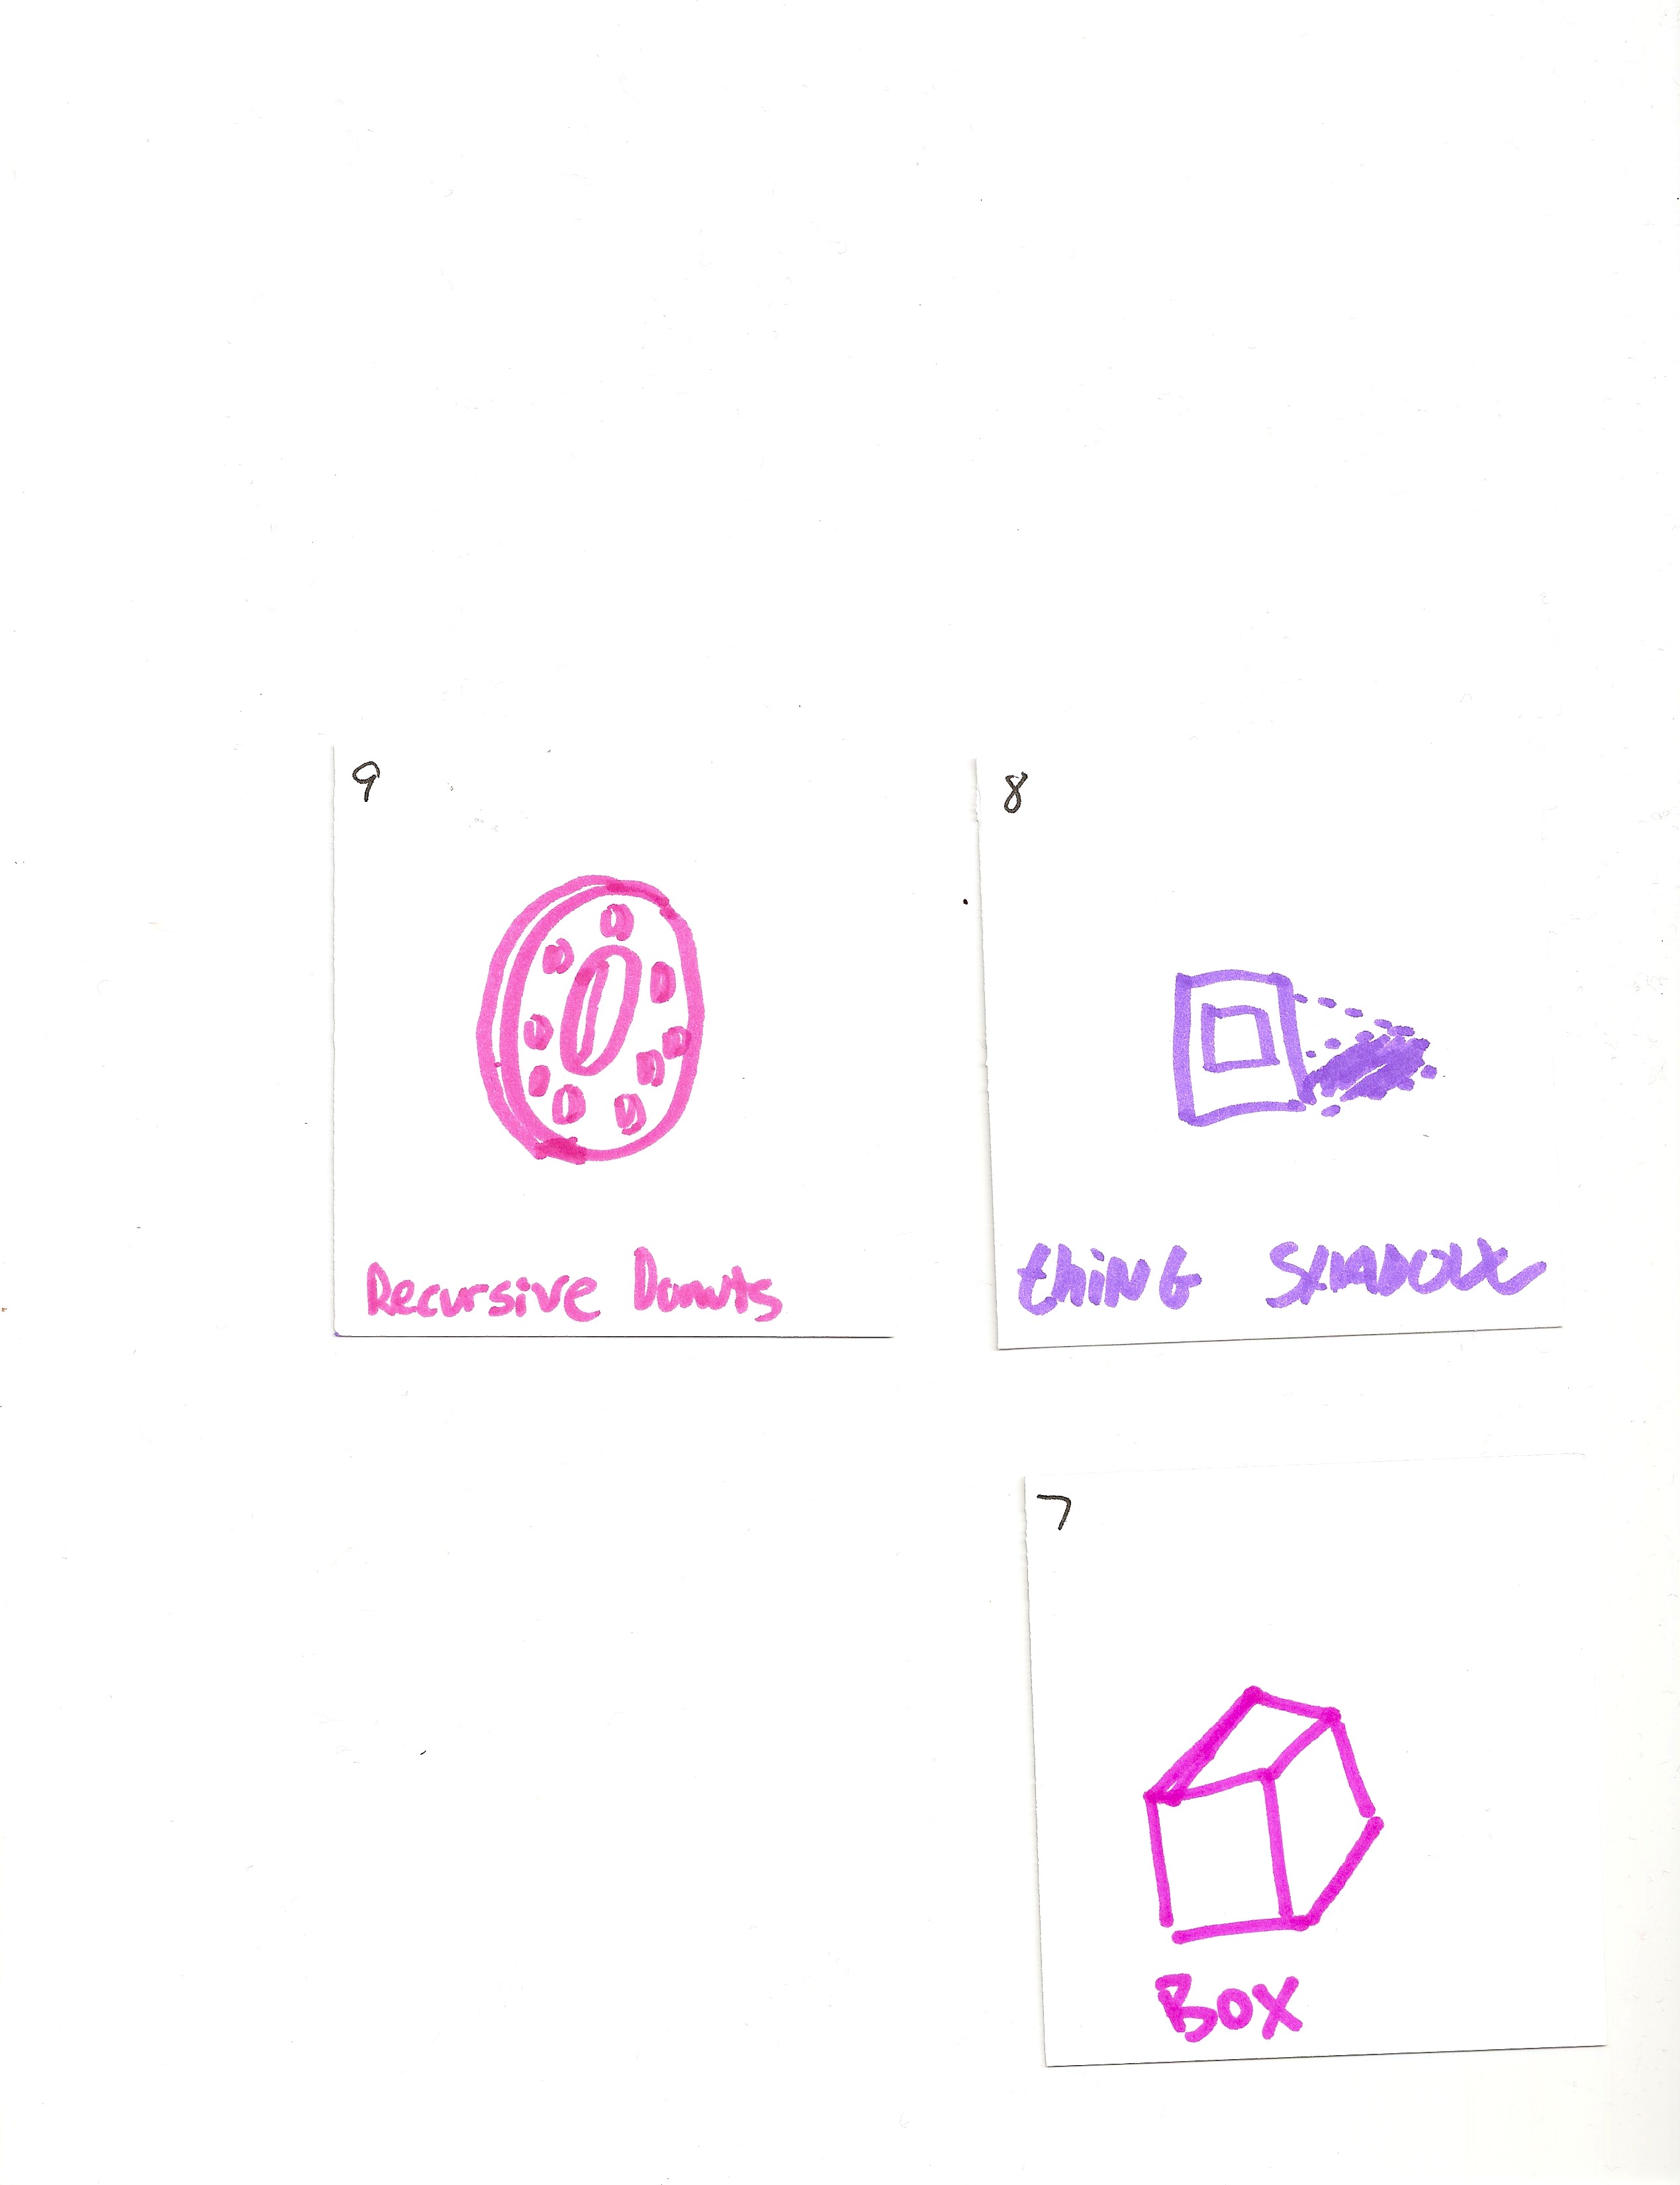 9
Recursive Donuts
8
thiNG SHADOW
7
Box